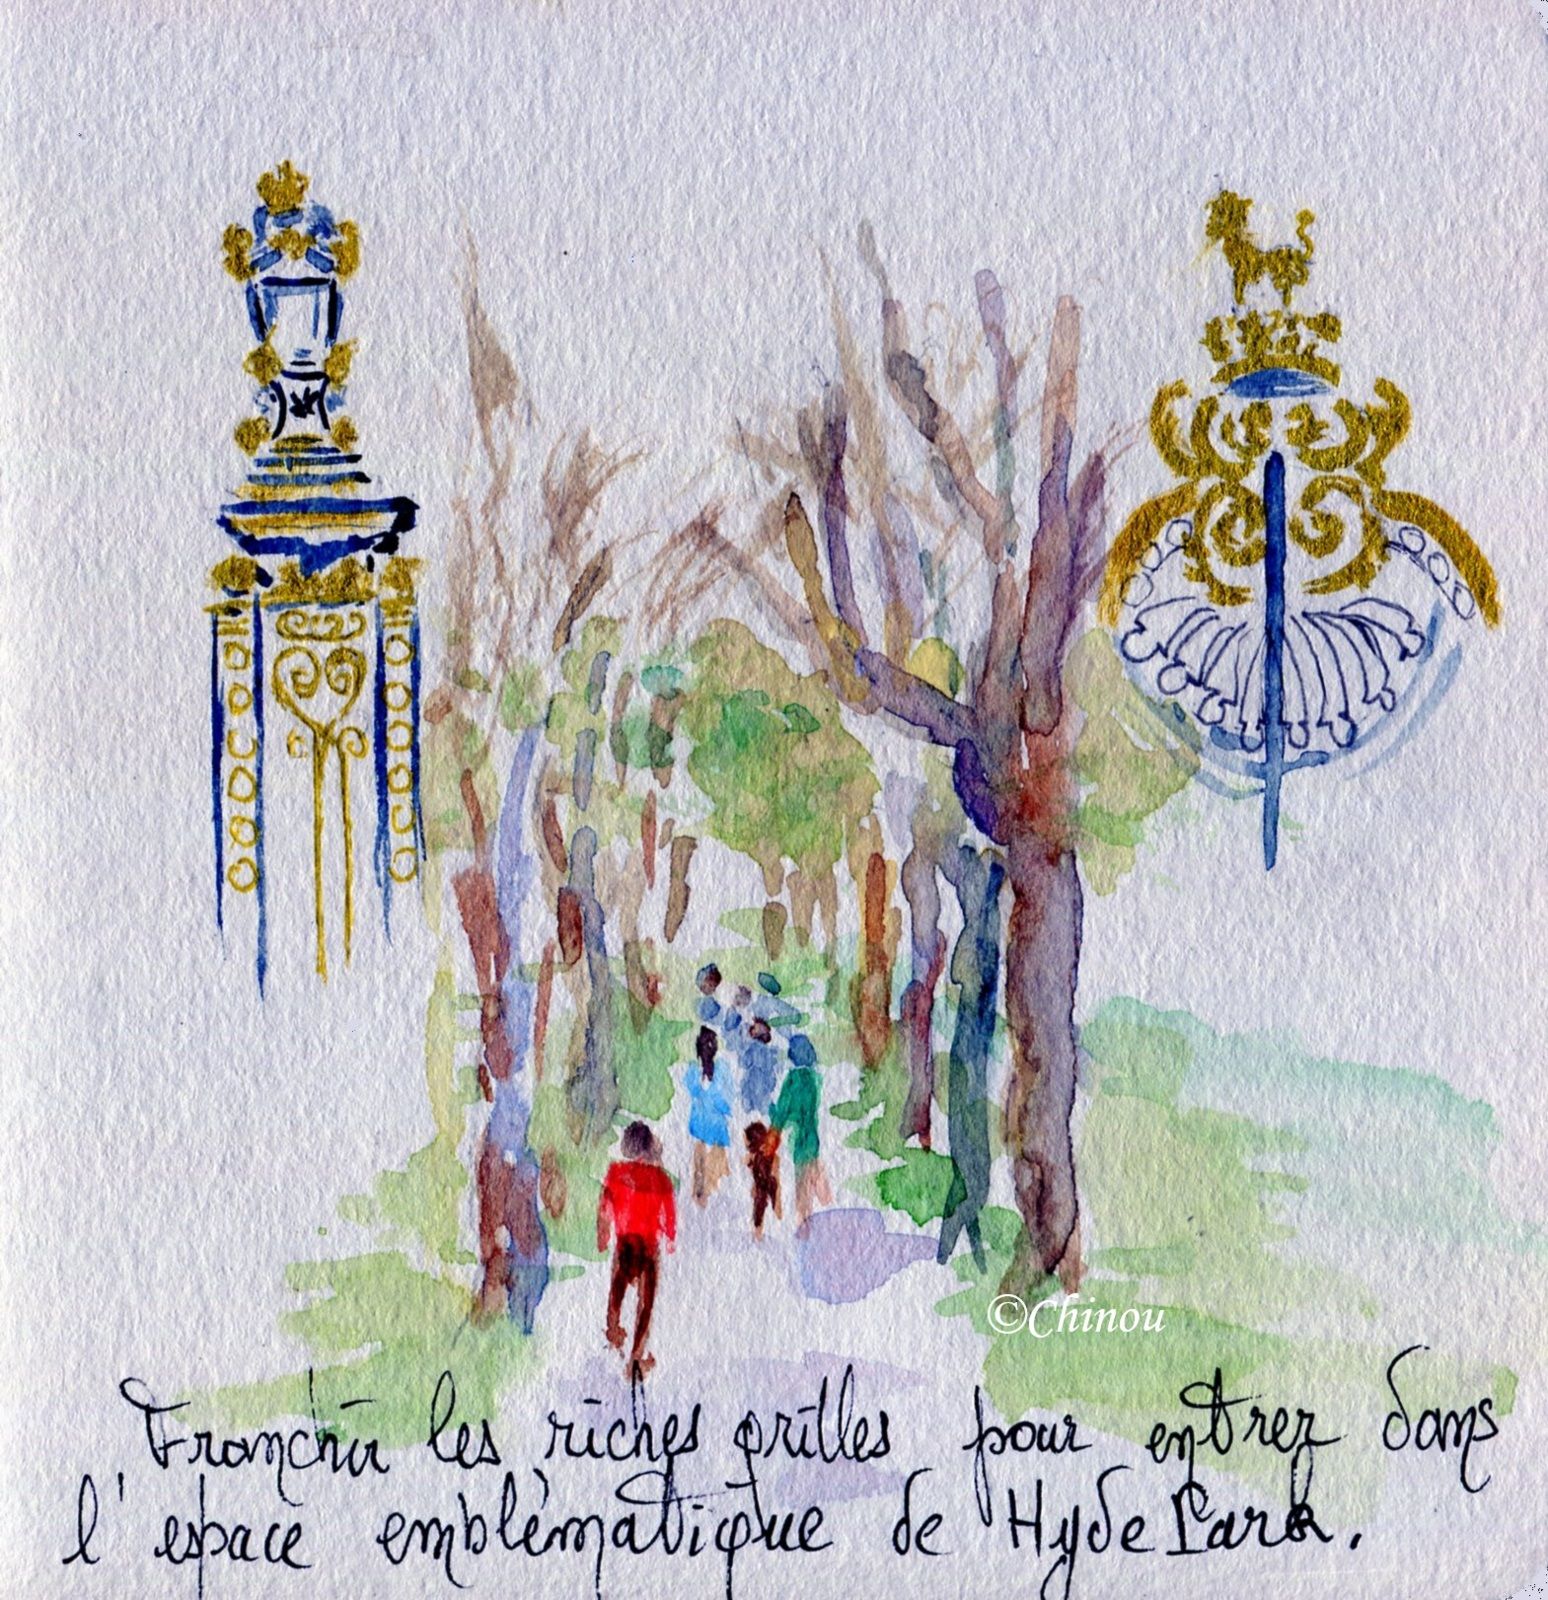 ©Chinou
Franchir les riches grilles pour entrer dans
l'espace emblèmatique de Hyde Park.